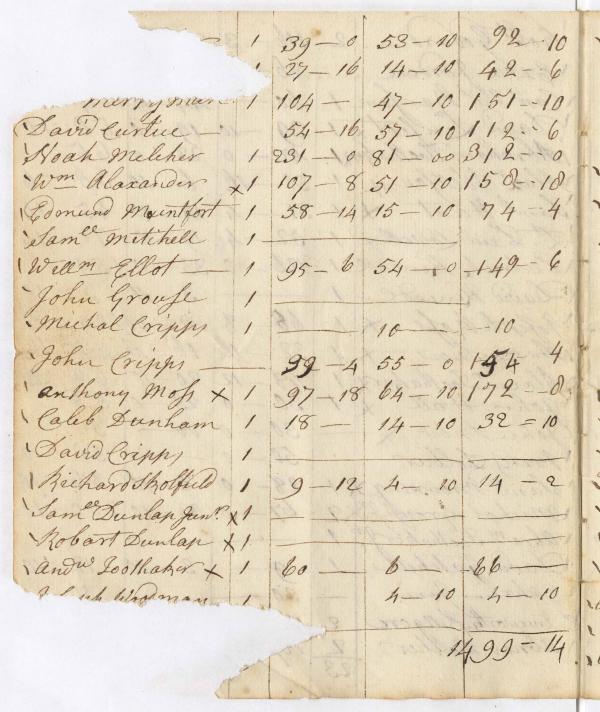 1 39 — 0 53 — 10 92 — 10
1 27 — 16 14 — 10 42 — 6
Merryman 1 104 — 47 — 10 151 — 10
David Curtue — 54 — 16 57 — 10 112 — 6
Noah Melcher 1 231 — 0 81 — 00 312 — 0
Wm Alaxander x 1 107 — 8 51 — 10 158 — 18
Edmund Mountfort 1 58 — 14 15 — 10 74 — 4
Samll Mitchell 1 —
Willm Ellot — 1 95 — 6 54 — 0 149 — 6
John Grouse 1 —
Michal Cripps 1 — 10 — — 10
John Cripps — 99 — 4 55 — 0 154 4
anthony Moss x 1 97 — 18 64 — 10 172 — 8
Caleb Dunham 1 18 — 14 — 10 32 = 10
David Cripps 1 —
Richard Skolfield 1 9 — 12 4 — 10 14 — 2
Samll Dunlap Junr x 1 —
Robart Dunlap x 1 —
Andw Toothaker x 1 60 — 6 — 66 —
Woodman 1 4 — 10 4 — 10
1499 — 14